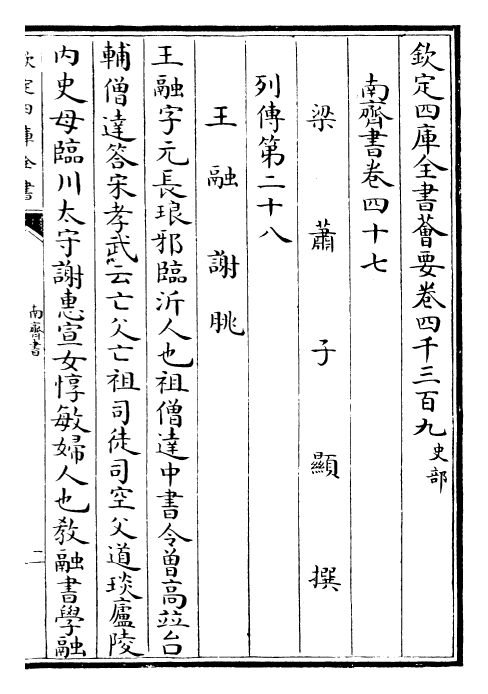 欽定四庫全書薈要卷四千三百九史部
南齊書卷四十七
梁蕭子顯撰
列傳第二十八
王融謝朓
王融字元長琅邪臨沂人也祖僧達中書令曾高竝台
輔僧達答宋孝武云亡父亡祖司徒司空父道琰廬陵
内史母臨川太守謝惠宣女惇敏婦人也教融書學融
欽定四庫全書
南齊書